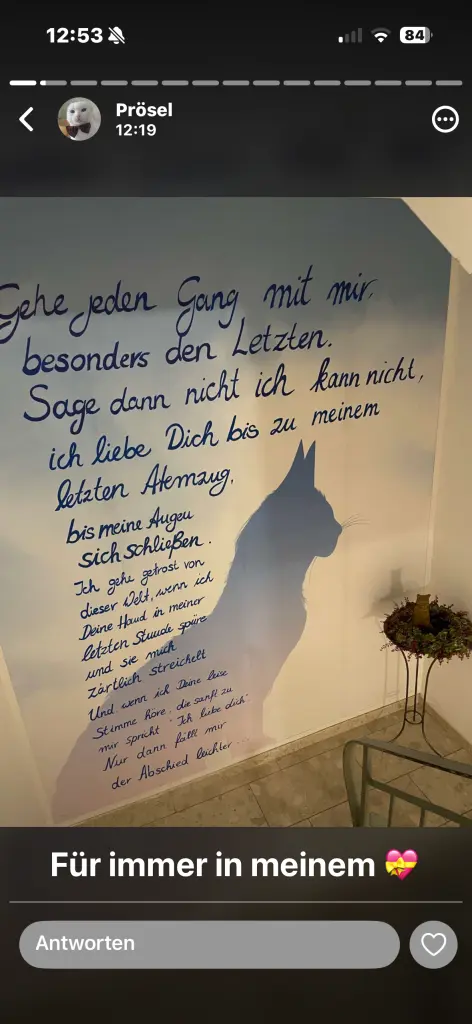 12:53
84
Prösel
12:19
Gehe jeden Gang mit mir,
besonders den Letzten.
Sage dann nicht ich kann nicht,
ich liebe Dich bis zu meinem
letzten Atemzug,
bis meine Augen
sich schließen.
Ich gehe getrost von
dieser Welt, wenn ich
Deine Hand in meiner
letzten Stunde spüre
und sie mich
zärtlich streichelt
Und wenn ich Deine leise
Stimme höre, die sanft zu
mir spricht "Ich liebe dich"
Nur dann fällt mir
der Abschied leichter...
Für immer in meinem 💝
Antworten